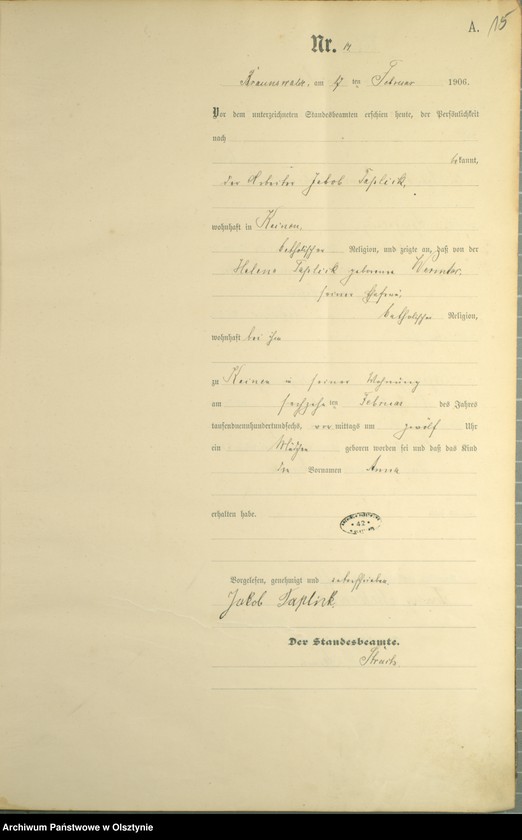 A. 15
Nr.
Braunswalde, am ten Februar 1906.
Vor dem unterzeichneten Standesbeamten erschien heute, der Persönlichkeit
nach
bekannt,
der Arbeiter Jakob Taplick,
wohnhaft in Keinen,
katholischer Religion, und zeigte an, daß von der
Helene Taplick geborene
seiner Ehefrau,
katholischer Religion,
wohnhaft bei ihm
zu Keinen in seiner Wohnung
am ten Februar des Jahres
tausendneunhundertundsechs, vor mittags um zwölf Uhr
ein Mädchen geboren worden sei und daß das Kind
den Vornamen Anna
erhalten habe.
42
Vorgelesen, genehmigt und unterschrieben
Jakob Taplick
Der Standesbeamte.
Archiwum Państwowe w Olsztynie